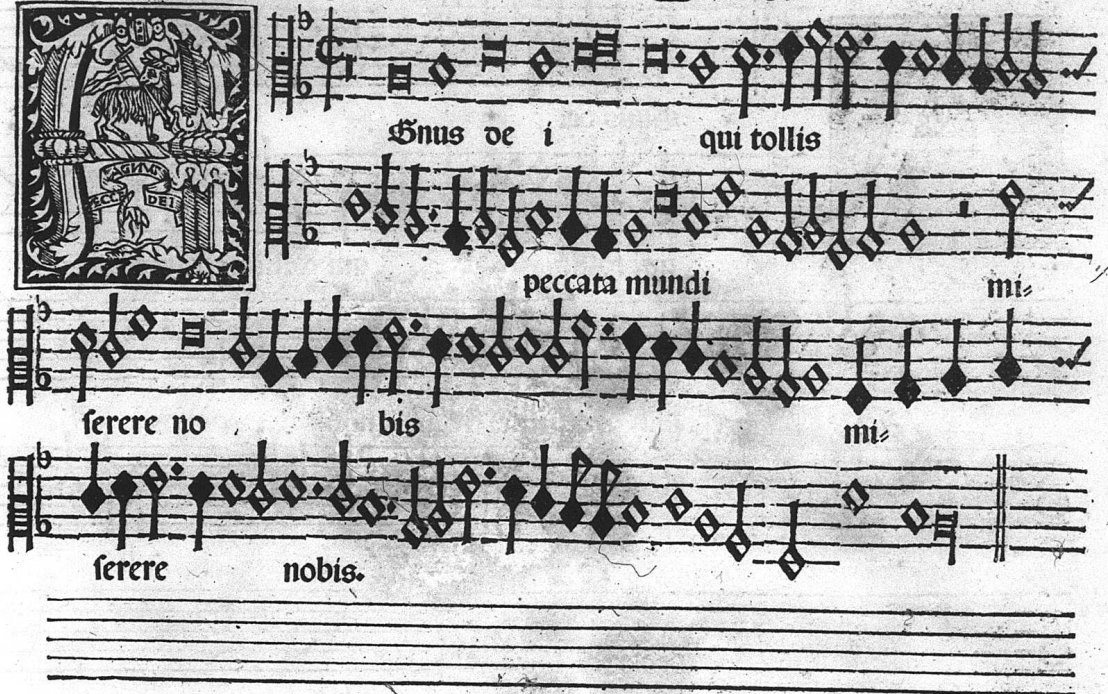 AGNUS
ECCE DEI
Gnus de i qui tollis
peccata mundi mi⸗
serere no bis mi⸗
serere nobis.